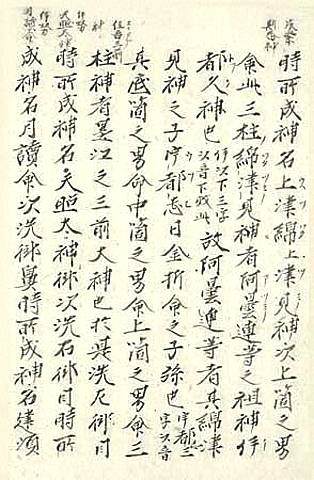 時所成神名上津綿上津見神次上箇之男
命此三柱綿津見神者阿曇連等之祖神伊
都久神也伊以下三字以音下效此故阿曇連等者其綿津
見神之子宇都志日金折命之子孫也宇都三字以音
其底箇之男命中箇之男命上箇之男命三
柱神者墨江之三前大神也於是洗左御目
時所成神名天照大神御次洗右御目時所
成神名月讀命次洗御鼻時所成神名建須